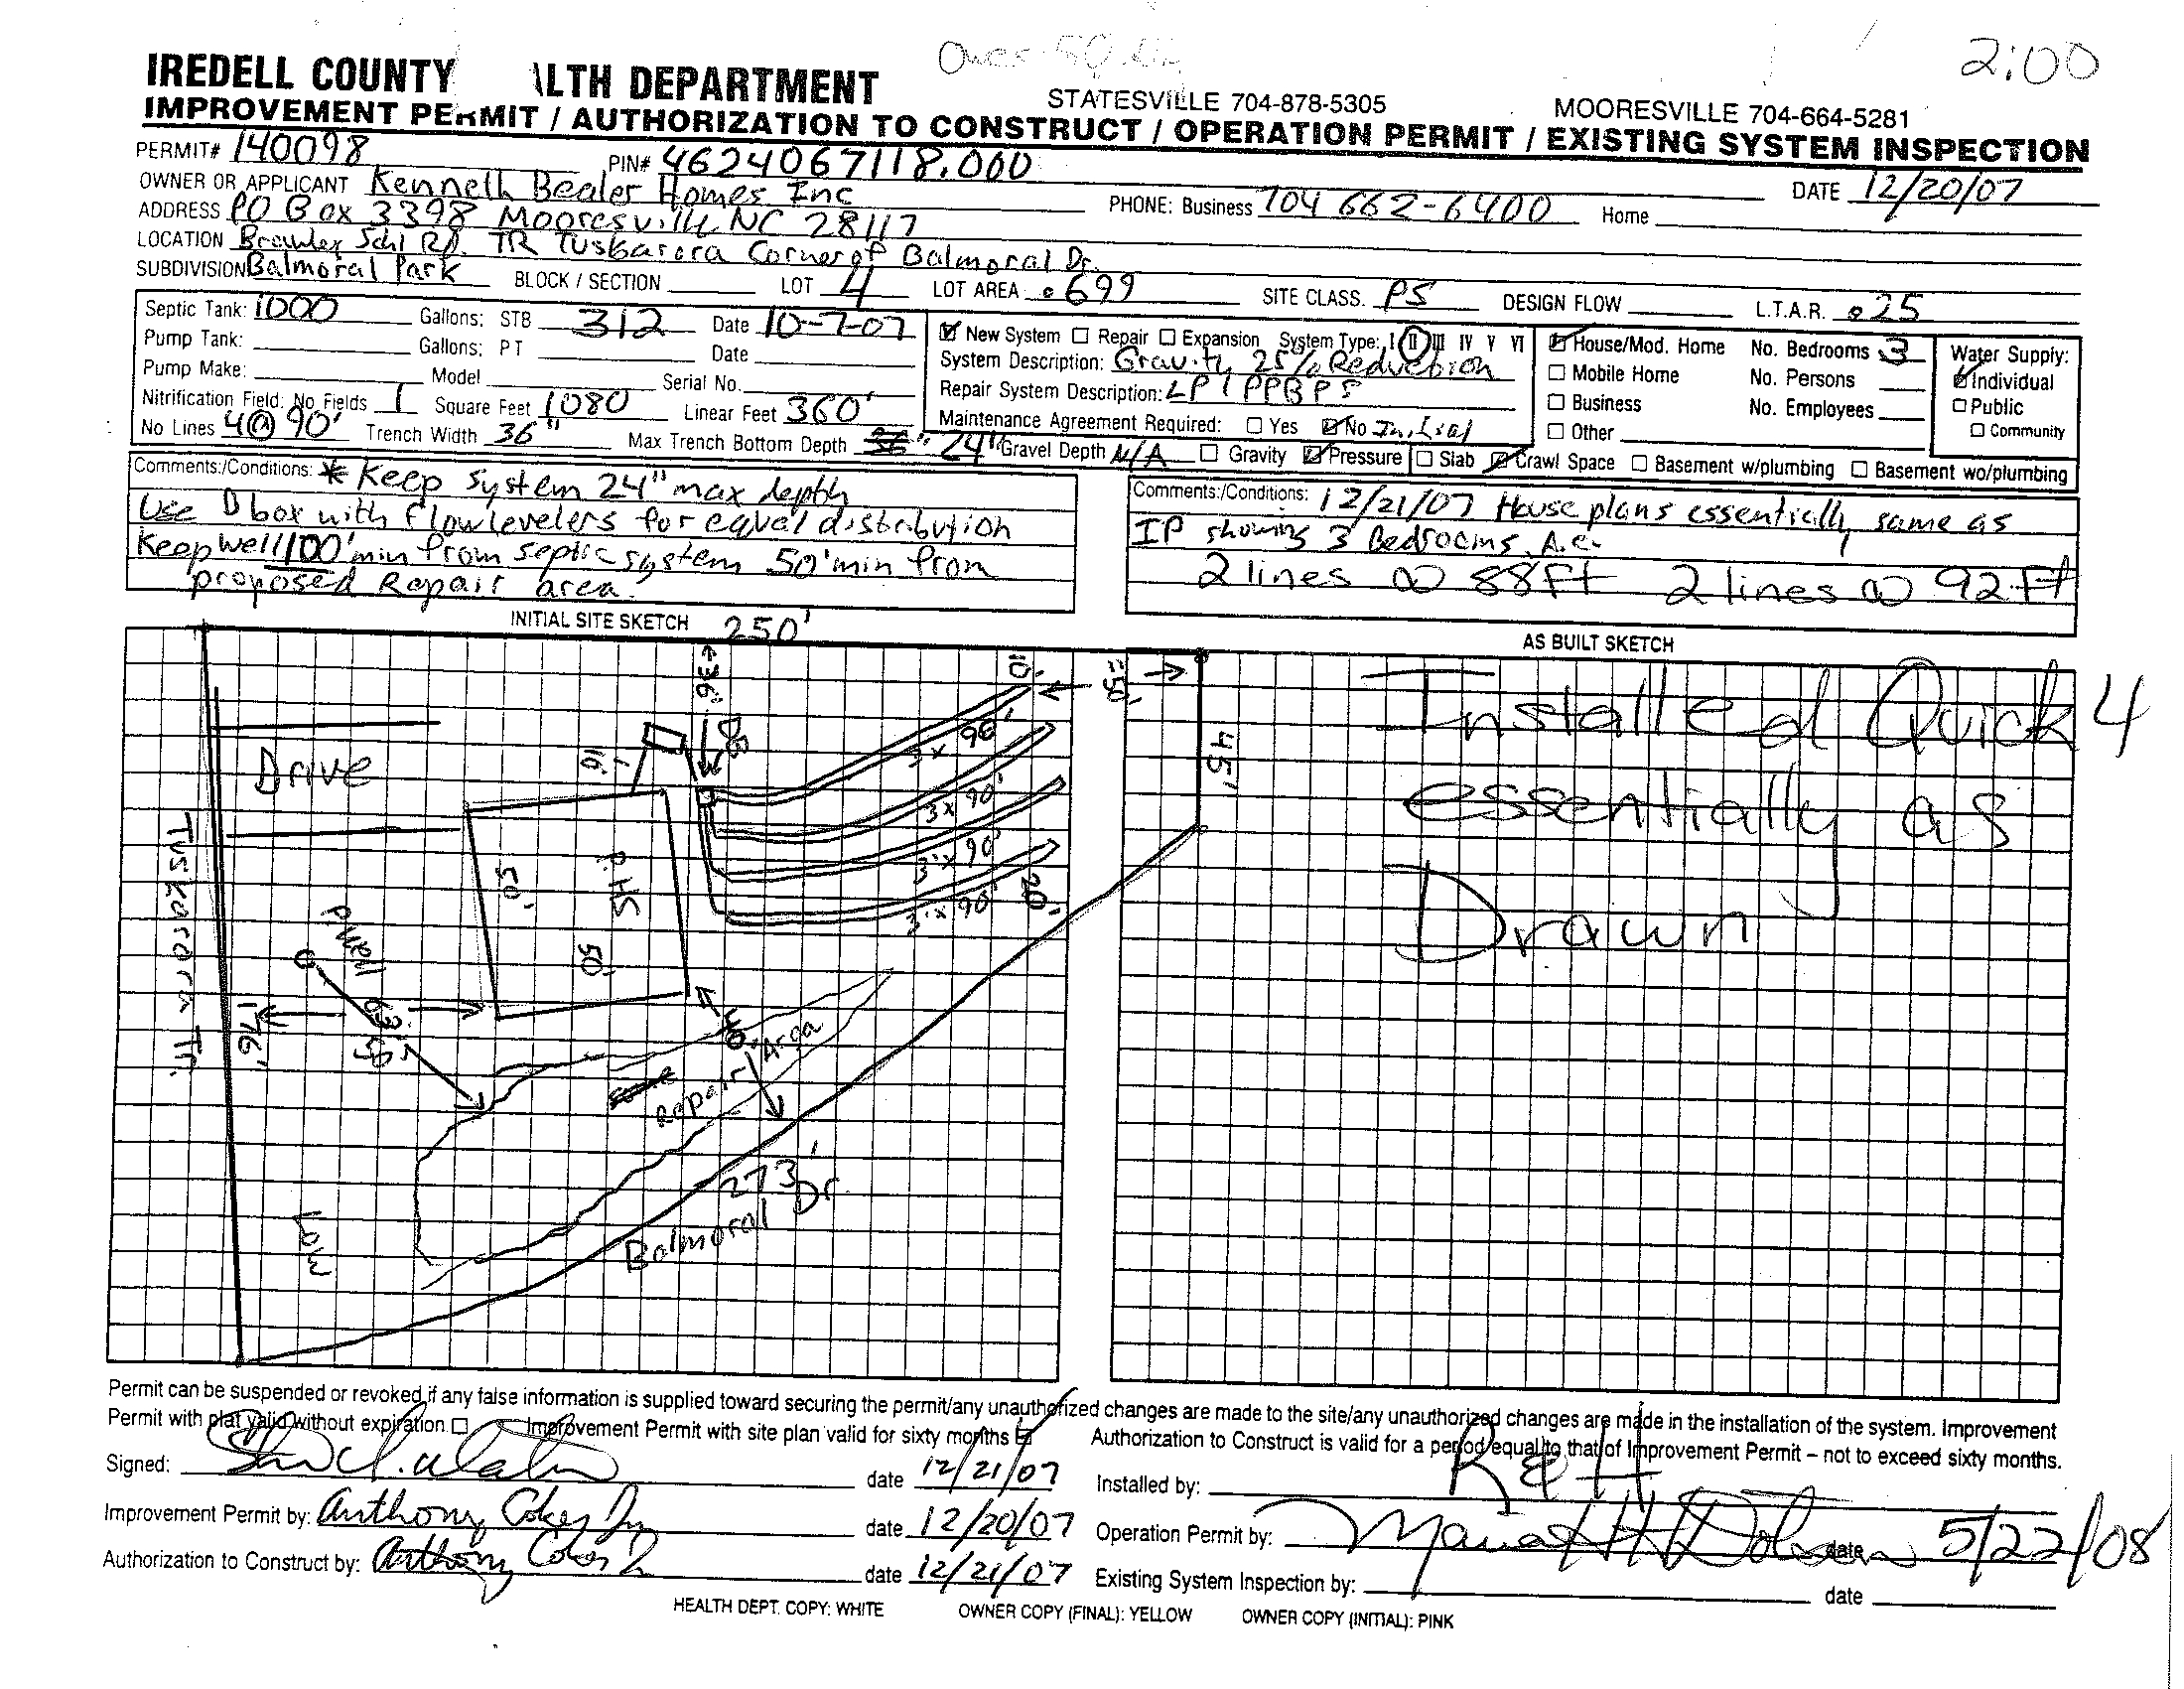 2:00
IREDELL COUNTY ALTH DEPARTMENT STATESVILLE 704-878-5305 MOORESVILLE 704-664-5281
IMPROVEMENT PERMIT / AUTHORIZATION TO CONSTRUCT / OPERATION PERMIT / EXISTING SYSTEM INSPECTION
PERMIT# 140098 PIN# 4624067118.000 DATE 12/20/07
OWNER OR APPLICANT Kenneth Bealer Homes Inc PHONE: Business 704 662-6400 Home
ADDRESS PO Box 3398 Mooresville NC 28117
LOCATION Brawley Schl Rd. TR Tuskarora Corner of Balmoral Dr.
SUBDIVISION Balmoral Park BLOCK / SECTION LOT 4 LOT AREA .699 SITE CLASS. PS DESIGN FLOW L.T.A.R. .025
Septic Tank: 1000 Gallons: STB 312 Date 10-7-07
Pump Tank: Gallons: PT Date
Pump Make: Model Serial No.
Nitrification Field: No Fields 1 Square Feet 1080 Linear Feet 360'
No Lines 4@90' Trench Width 36" Max Trench Bottom Depth 36" 24" Gravel Depth N/A
New System Repair Expansion System Type: I II III IV V VI
System Description: Gravity 25% Reduction
Repair System Description: LPI PPBPS
Maintenance Agreement Required: Yes No Initial
Gravity Pressure Slab Crawl Space Basement w/plumbing Basement wo/plumbing
House/Mod. Home No. Bedrooms 3
Mobile Home No. Persons
Business No. Employees
Other
Water Supply:
Individual
Public
Community
Comments:/Conditions: * Keep System 24" max depth
Use D box with flowlevelers for equal distribution
Keep well 100' min from septic system 50' min from
proposed Repair area.
Comments:/Conditions: 12/21/07 House plans essentially same as
IP showing 3 Bedrooms. A.C.
2 lines @ 88Ft 2 lines @ 92 Ft
INITIAL SITE SKETCH 250'
AS BUILT SKETCH
36'
10'
50'
45'
DB
3' x 90'
3 x 90'
3' x 90'
3' x 90'
20'
Drive
10'
P. HS
50'
50'
Tuskarora Tr.
Pwell
63'
50'
76'
40'
Repair Area
273'
Balmoral Dr.
Low
Installed Quick 4
essentially as
Drawn
Permit can be suspended or revoked if any false information is supplied toward securing the permit/any unauthorized changes are made to the site/any unauthorized changes are made in the installation of the system. Improvement
Permit with plat valid without expiration Improvement Permit with site plan valid for sixty months Authorization to Construct is valid for a period equal to that of Improvement Permit – not to exceed sixty months.
Signed: date 12/21/07 Installed by: R & H
Improvement Permit by: Anthony Coker Jr date 12/20/07 Operation Permit by: date 5/22/08
Authorization to Construct by: Anthony Coker Jr date 12/21/07 Existing System Inspection by: date
HEALTH DEPT. COPY: WHITE OWNER COPY (FINAL): YELLOW OWNER COPY (INITIAL): PINK